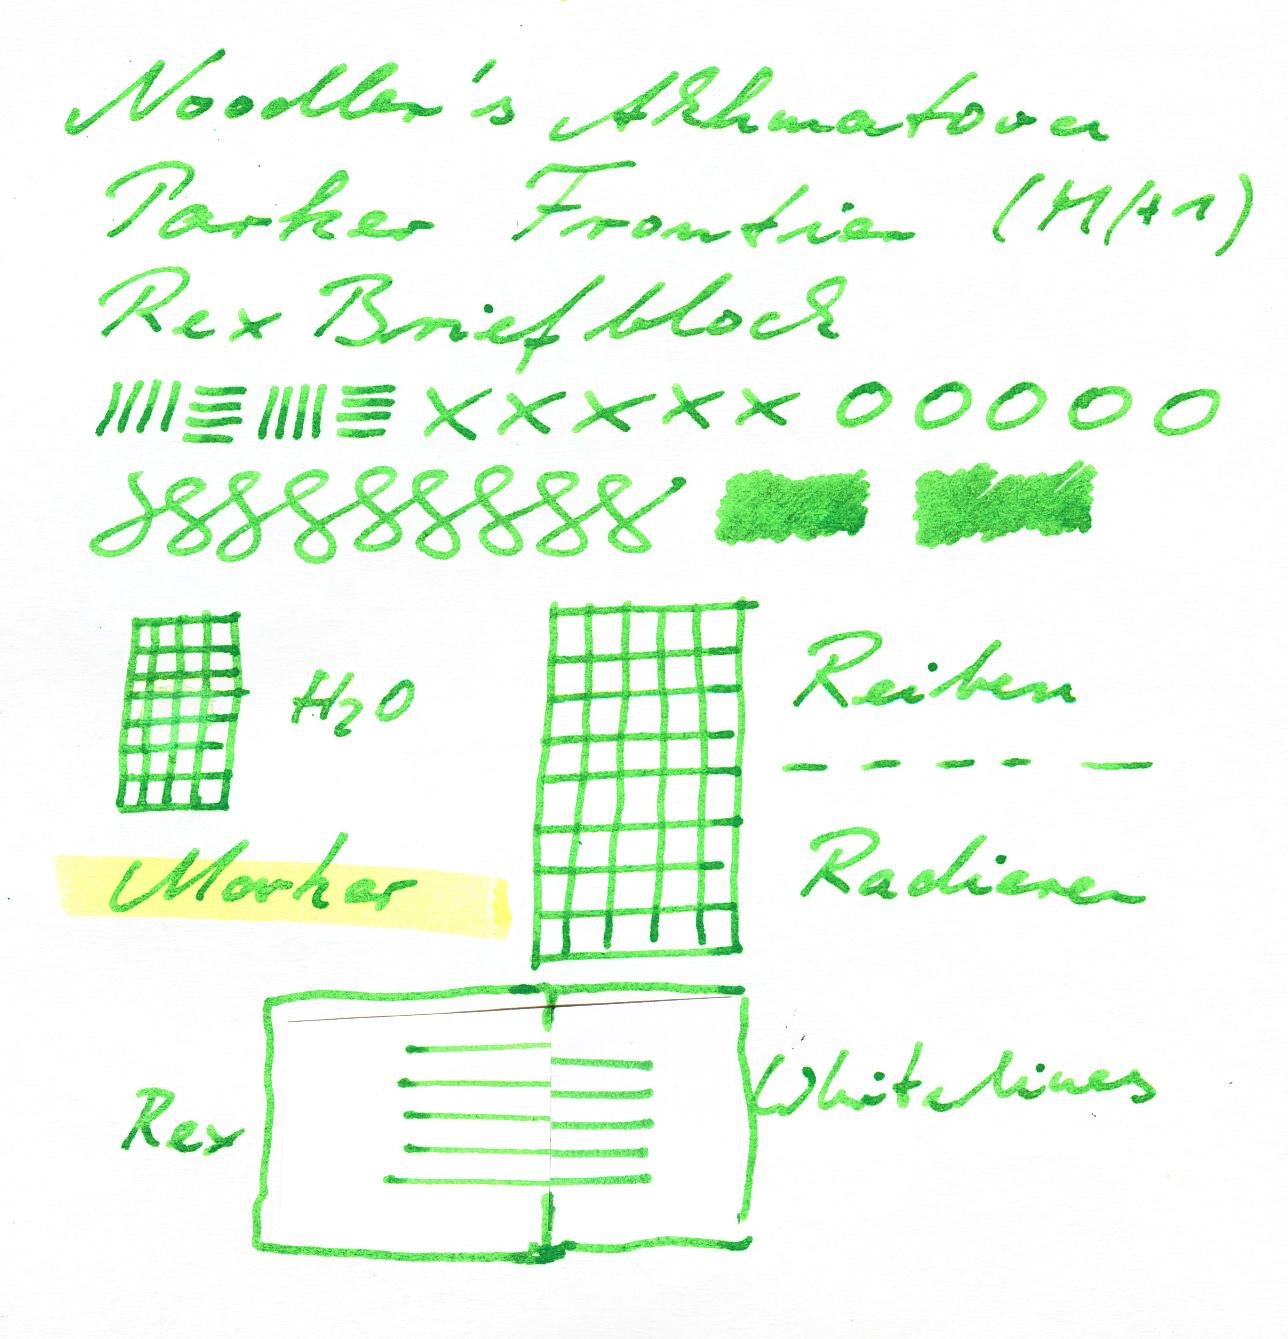 Noodler's Akhmatova
Parker Frontier (M/A1)
Rex Briefblock
xxxxx OOOOO
H₂O
Reiben
Marker
Radieren
Rex
Whitelines